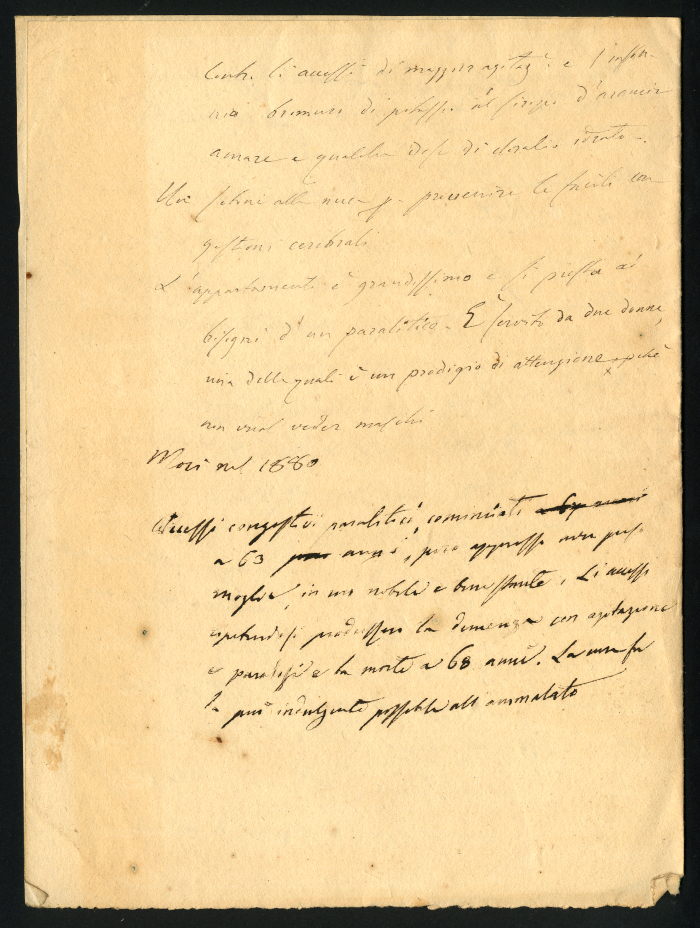 Contr. li accessi di maggior agitaz.e e l'inson-
nia bromuro di potassio al siropo d'arancio
amaro e qualche dose di cloralio idrato.
alla nuca p. prevenire le facili con-
gestioni cerebrali
L'appartamento è grandissimo e si presta ai
bisogni d'un paralitico. È servito da due donne,
una delle quali è un prodigio di attenzione, perchè
non vuol veder maschi
Morì nel 1880
Accessi congestivi paralitici, cominciati
a 63 anni, poco appresso aver preso
moglie, in un nobile e benestante. Li accessi
ripetendosi produssero la demenza con agitazione
e paralisi e la morte a 68 anni. La cura fu
la più indulgente possibile all'ammalato